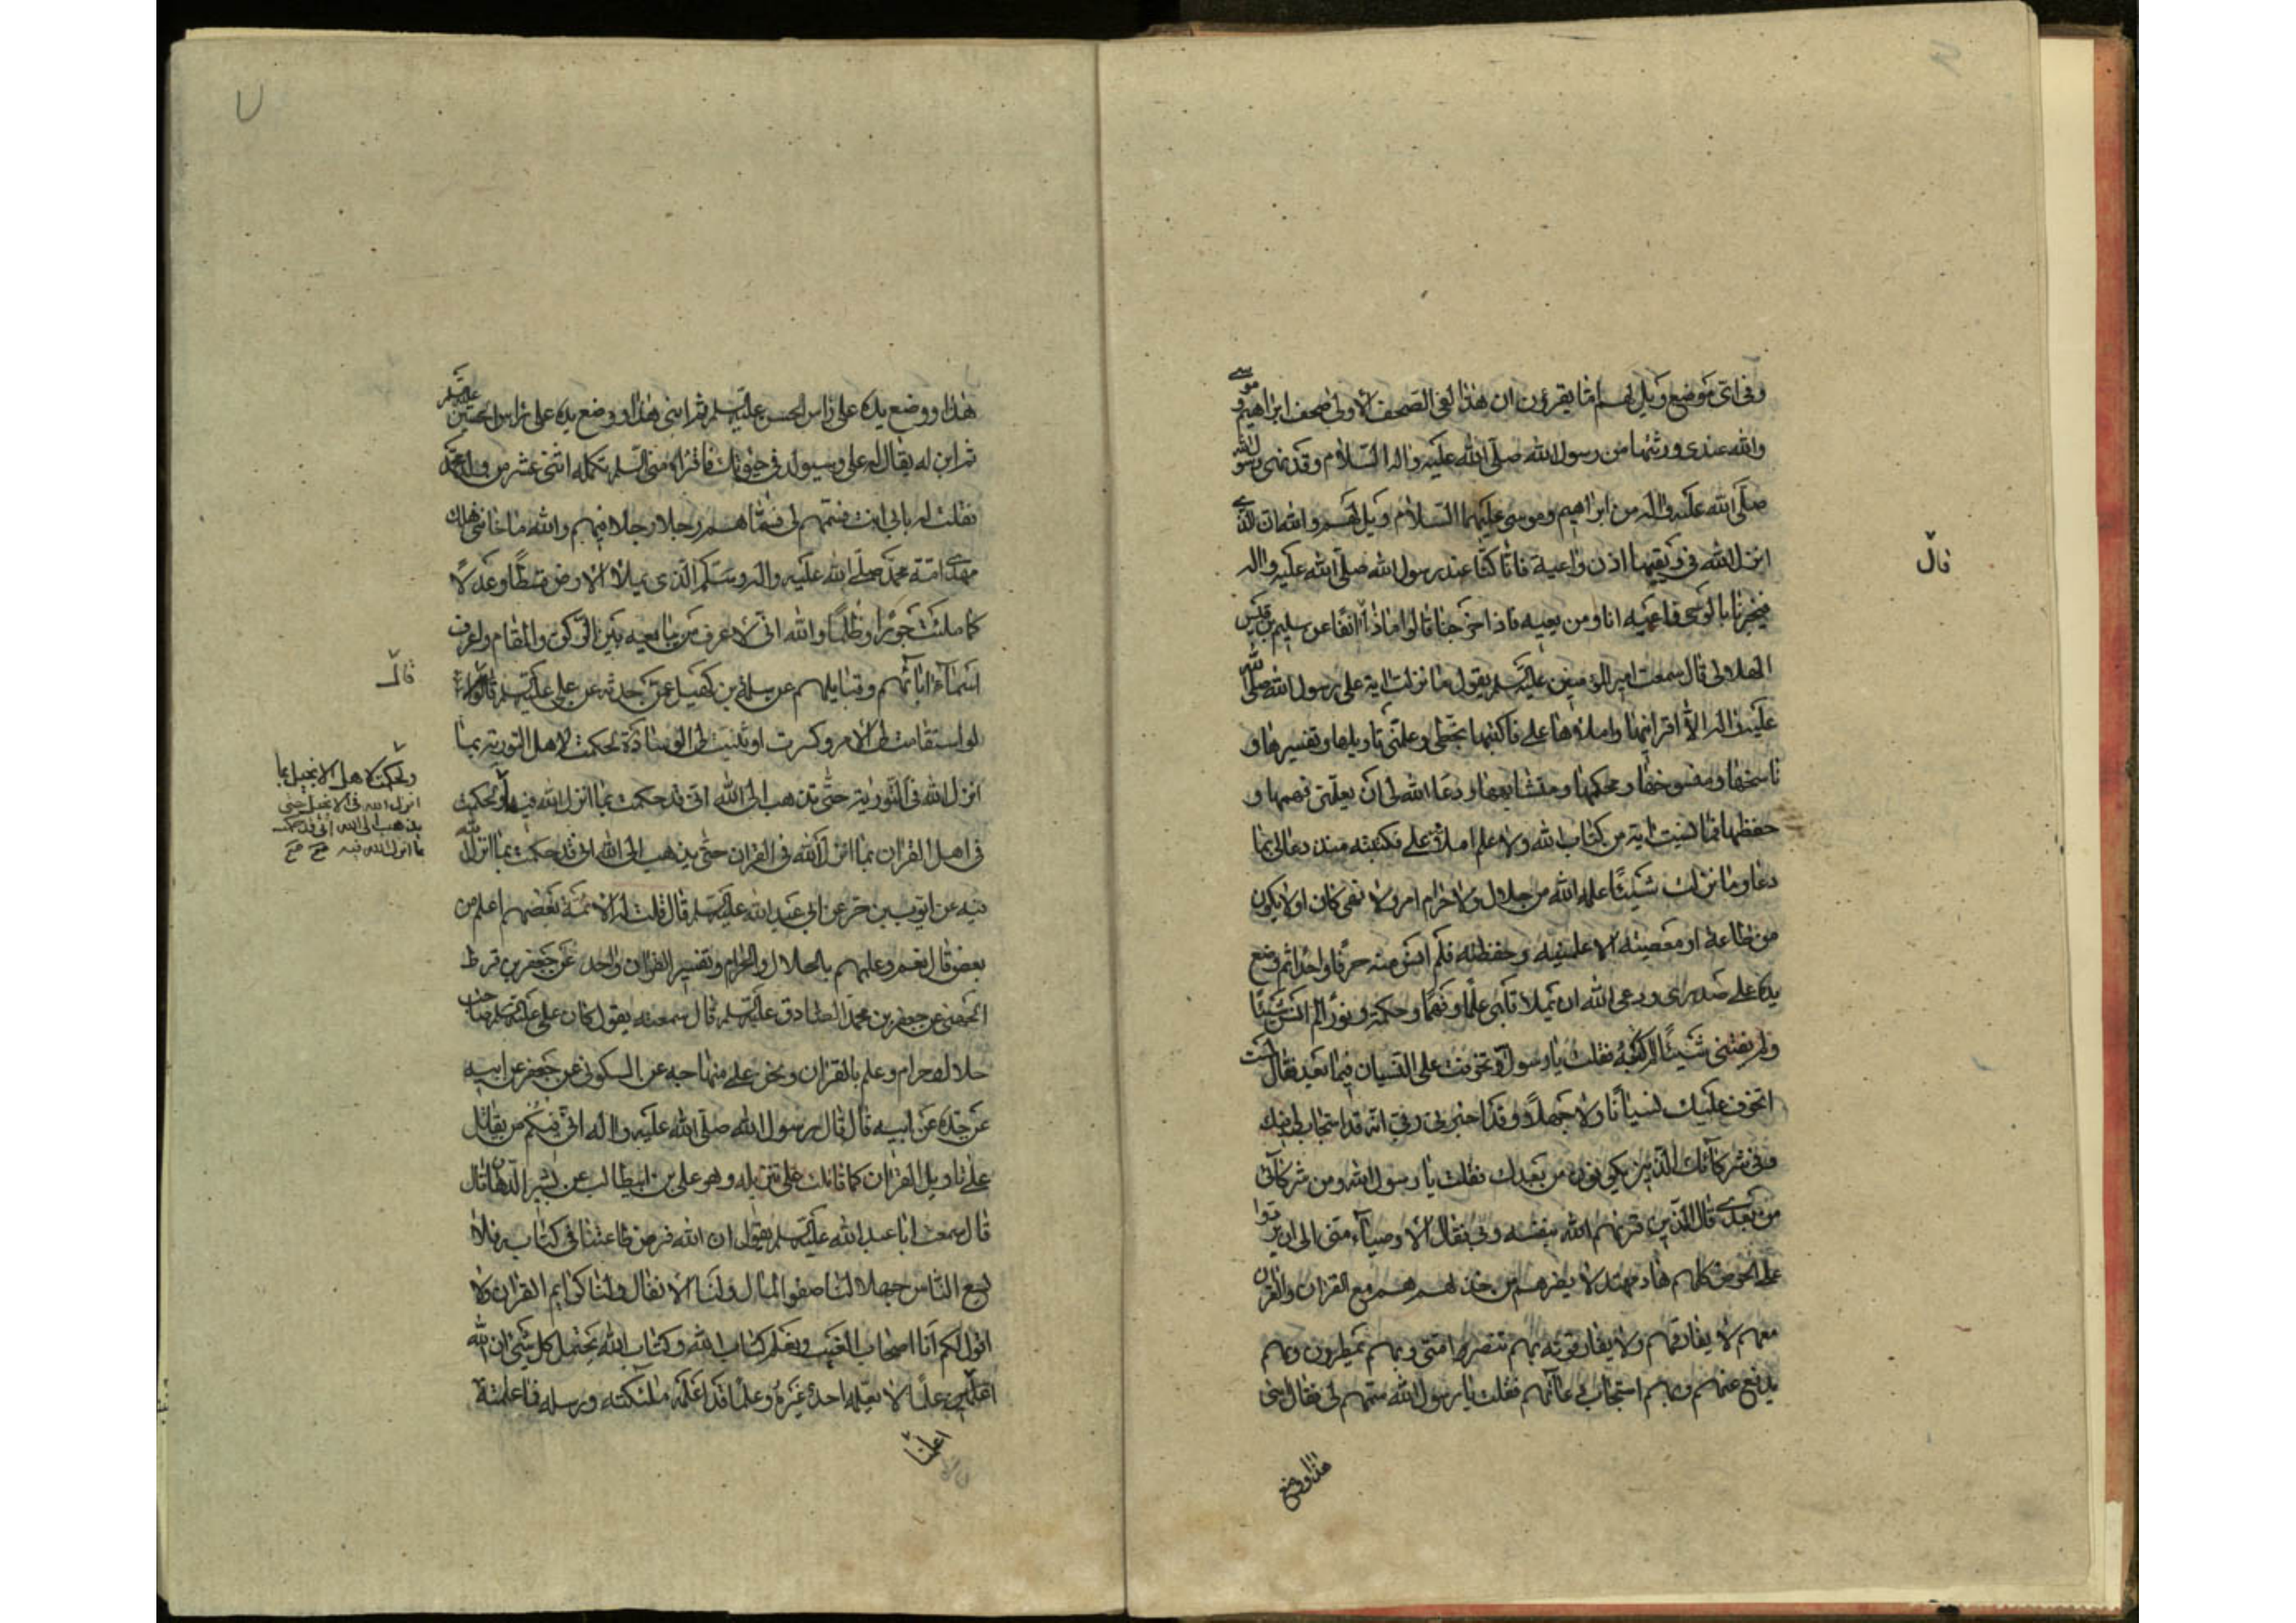 وفى اى موضع ويل لهم اما يقرؤن ان هذا لفى الصحف الاولى صحف ابراهيم و موسى
والله عندى ورثتها من رسول الله صلى الله عليه واله السلام وقد ورثها رسول الله
صلى الله عليه واله من ابراهيم وموسى عليهما السلام ويل لهم والله ان الذى
انزل الله فى وتعيها اذن واعية فانا كنا عند رسول الله صلى الله عليه واله
قال
فيخبرنا بالوحى فاعيه انا ومن يعيه فاذا خرجنا قالوا ماذا قال انفا عن سليم بن قيس
الهلالى قال سمعت امير المؤمنين عليه السلم يقول ما نزلت اية على رسول الله صلى الله
عليه واله الا اقرانيها واملاها على فاكتبها بخطى وعلمنى تاويلها وتفسيرها و
ناسخها ومنسوخها ومحكمها ومتشابهها ودعا الله لى ان يعلمنى فهمها و
حفظها فما نسيت اية من كتاب الله ولا علم املاه على فكتبته منذ دعا لى بما
دعا وما نزل شيئا علمه الله من حلال ولا حرام امر ولا نهى كان او لا يكون
من طاعة او معصيته الا علمنيه وحفظته فلم انس منه حرفا واحدا ثم وضع
يده على صدرى ودعى الله ان يملا قلبى علما وفهما وحكمة ونورا لم انس شيئا
ولم يفتنى شيئا لم اكتبه فقلت يا رسول الله تخوفت على النسيان فيما بعد فقال لست
اتخوف عليك نسيانا ولا جهلا وقد اخبرنى ربى انه قد استجاب لى فيك
وفى شركائك الذين يكونون من بعدك فقلت يا رسول الله ومن شركائى
من بعدى قال الذين قرنهم الله بنفسه وبى فقال الاوصياء منى الى ان يردوا
على الحوض كلهم هاد مهتد لا يضرهم من خذلهم هم مع القران والقران
معهم لا يفارقهم ولا يفارقونه بهم تنصر امتى وبهم يمطرون وبهم
يدفع عنهم وبهم استجاب دعائهم فقلت يا رسول الله سمهم لى فقال ابنى
هذا ووضع
هذا ووضع يده على راس الحسن عليه السلم ثم ابنى هذا ووضع يده على راس الحسين عليه السلم
ثم ابن له يقال له على وسيولد فى حيوتك فاقراه منى السلم تكمله اثنى عشر من ولد محمد
فقلت له بابى انت فسمهم لى فسماهم رجلا رجلا فيهم والله يا اخا بنى هلال
مهدى امة محمد صلى الله عليه واله وسلم الذى يملا الارض قسطا وعدلا
كما ملئت جورا وظلما والله انى لاعرف من يبايعه بين الركن والمقام واعرف
اسماء ابائهم وقبايلهم عن سلمة بن كهيل عمن حدثه عن على عليه السلم قال
قال
لو استقامت لى الامر وكسرت او ثنيت لى الوسادة لحكمت لاهل التورية بما
انزل الله فى التورية حتى تذهب الى الله انى قد حكمت بما انزل الله فيها ولحكمت
ولحكمت لاهل الانجيل بما
انزل الله فى الانجيل حتى
يذهب الى الله انى قد حكمت
بما انزل الله فيه صح صح
فى اهل القران بما انزل الله فى القران حتى يذهب الى الله انى قد حكمت بما انزل الله
فيه عن ايوب بن حر عن ابى عبد الله عليه السلم قال قلت له الائمة بعضهم اعلم من
بعض قال نعم وعلمهم بالحلال والحرام وتفسير القران واحد عن جعفر بن قرط
الجعفى عن جعفر بن محمد الصادق عليه السلم قال سمعته يقول كان على عليه السلم صاحب
حلال وحرام وعلم بالقران ونحن على منهاجه عن السكونى عن جعفر عن ابيه
عن جده عن ابيه قال قال رسول الله صلى الله عليه واله ان فيكم من يقاتل
على تاويل القران كما قاتلت على تنزيله وهو على بن ابيطالب عن بشير الدهان قال
قال سمعت ابا عبد الله عليه السلم يقول ان الله فرض طاعتنا فى كتابه فلا
يسع الناس جهلا لنا صفو المال ولنا الانفال ولنا كرايم القران ولا
اقول لكم انا اصحاب الغيب ونعلم كتاب الله وكتاب الله يحتمل كل شئ ان الله
اعلمنا علما لا يعلمه احد غيره وعلما قد اعلمه ملئكته ورسله فما علمته
اعلمنا